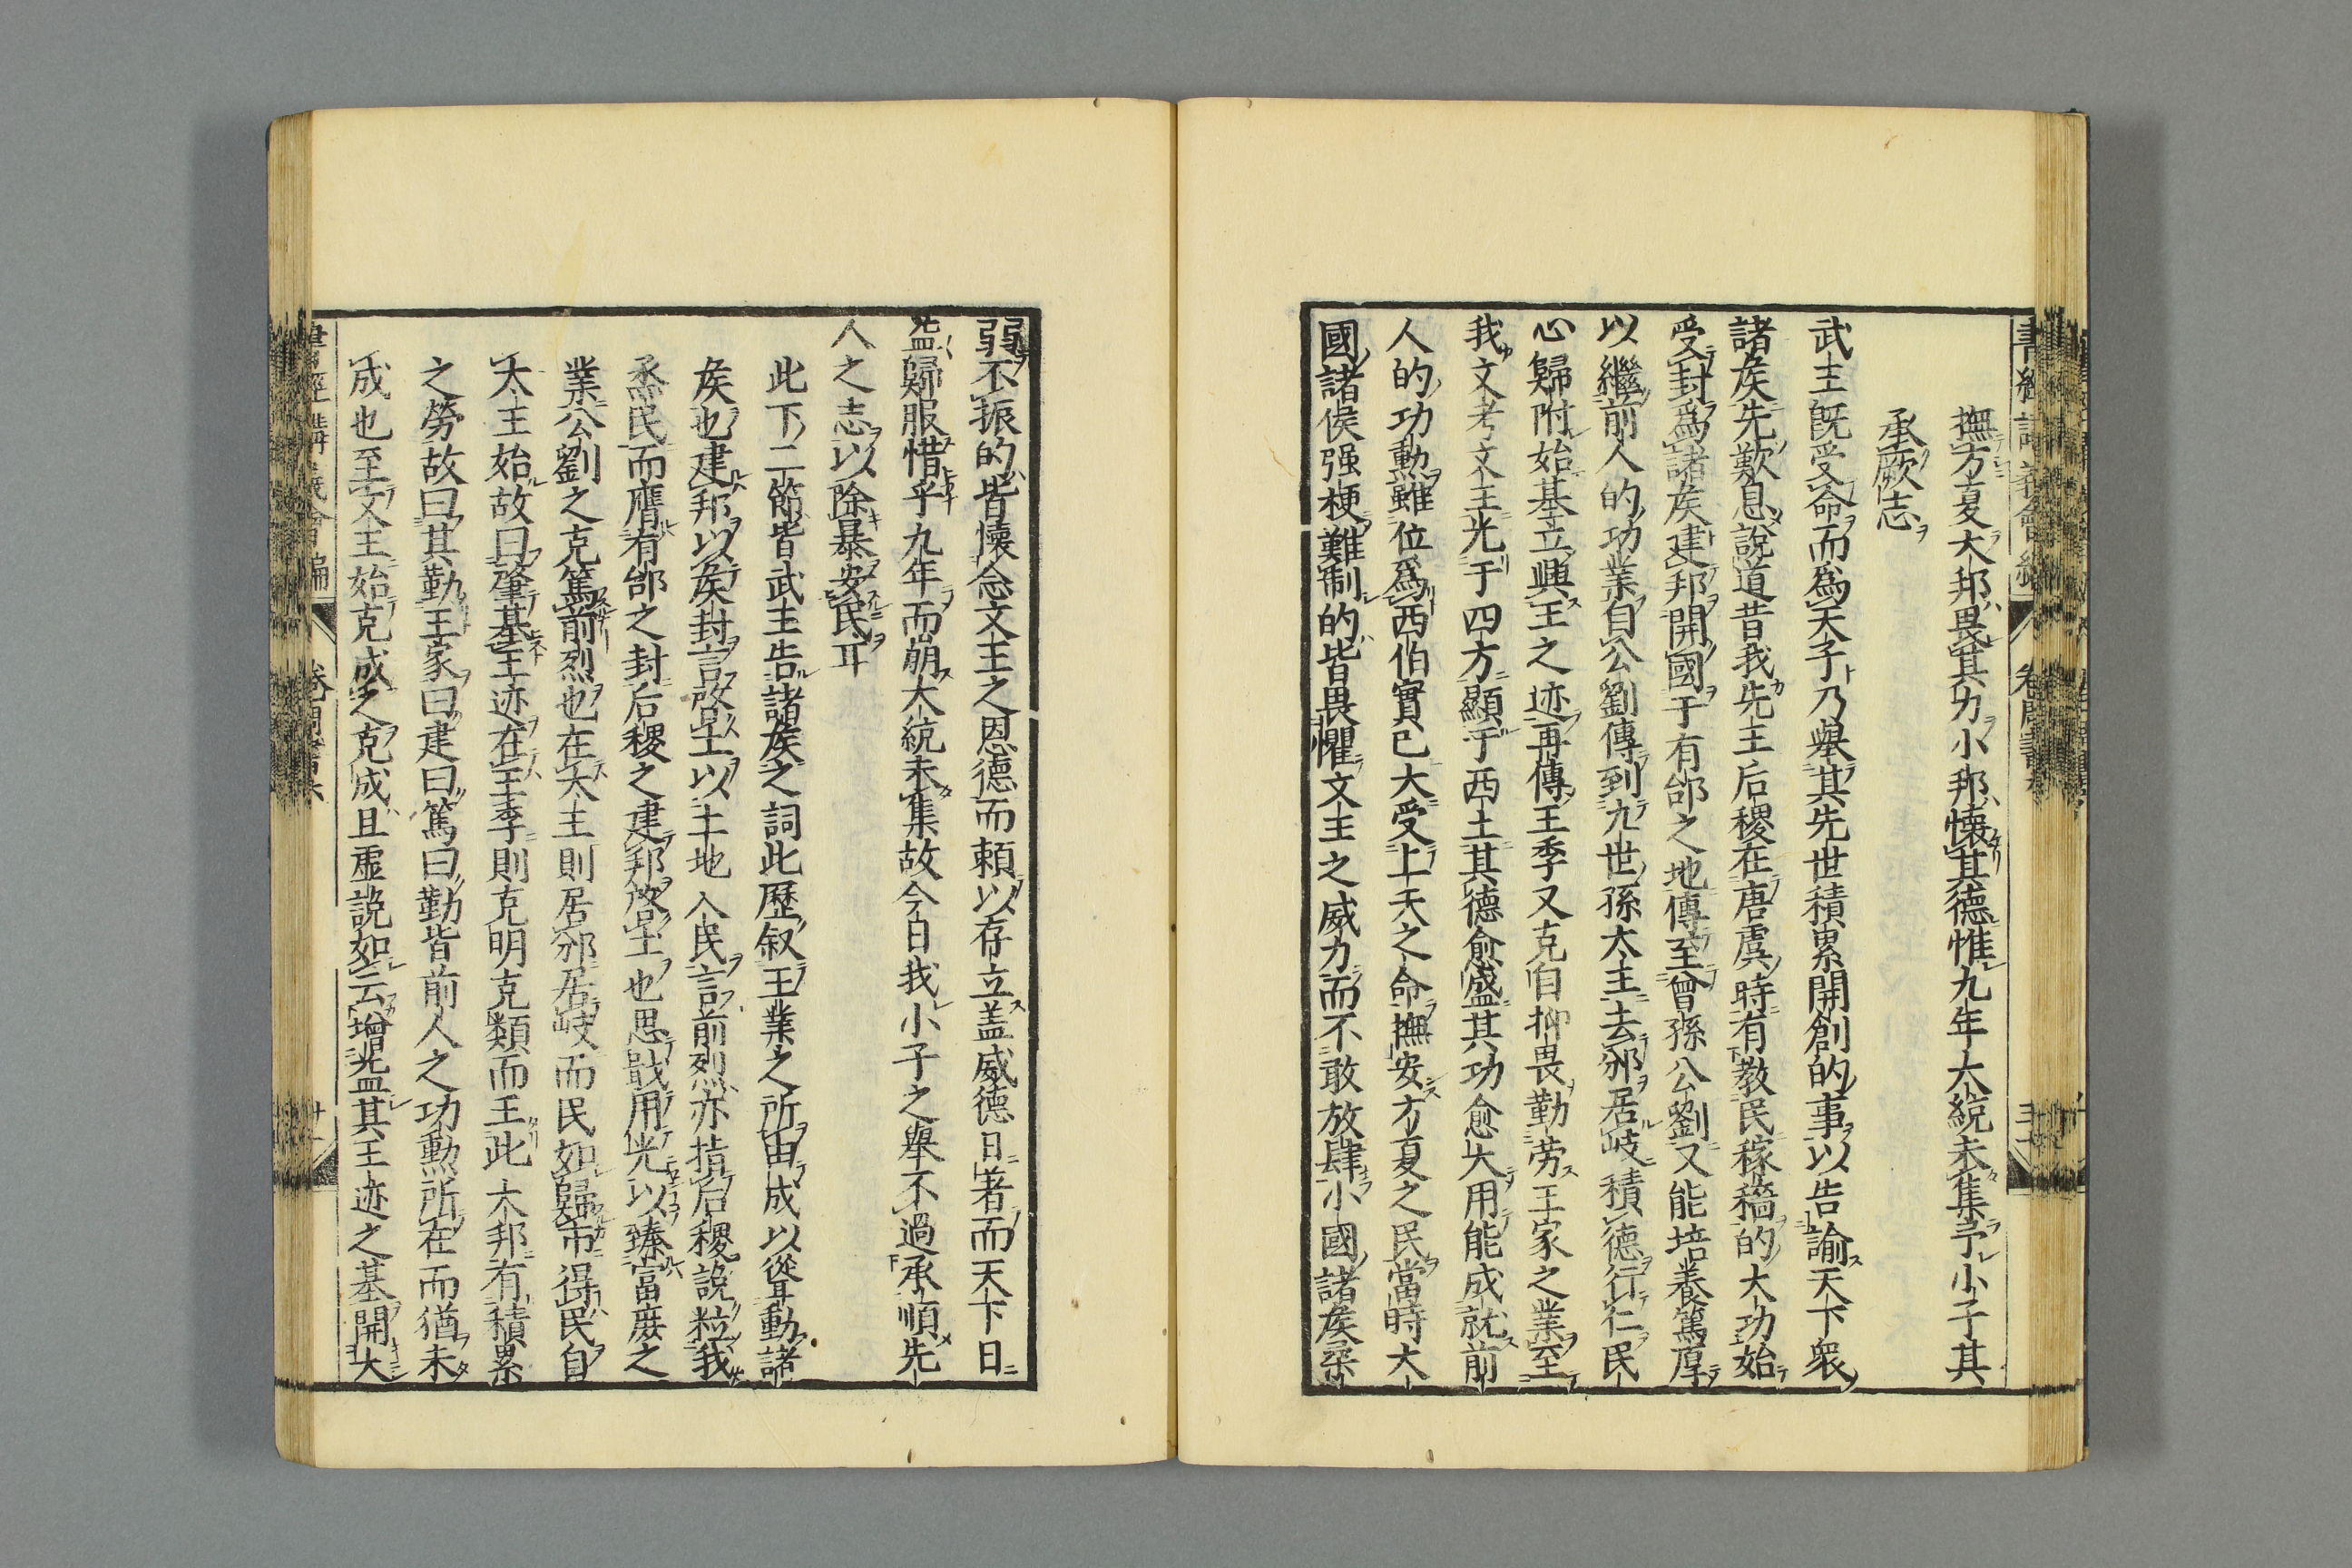 撫方夏大邦畏其力小邦懷其德惟九年大統未集予小子其
承厥志
武王既受命而爲天子乃舉其先世積累開創的事以告諭天下衆
諸矦先歎息說道昔我先王后稷在唐虞時有教民稼穡的大功始
受封爲諸矦建邦開國于有邰之地傳至曾孫公劉又能培養篤厚
以繼前人的功業自公劉傳到九世孫太王去邠居岐積德行仁民
心歸附始基立興王之迹再傳王季又克自抑畏勤勞王家之業至
我文考文王光于四方顯于西土其德愈盛其功愈大用能成就前
人的功勳雖位爲西伯實已大受上天之命撫安方夏之民當時大
國諸侯强梗難制的皆畏懼文王之威力而不敢放肆小國諸矦柔
弱不振的皆懷念文王之恩德而頼以存立盖威德日著而天下日
益歸服惜乎九年而崩大統未集故今日我小子之舉不過承順先
人之志以除暴安民耳
此下二節皆武王告諸矦之詞此歷叙王業之所由成以聳動諸
矦也建邦以矦封言啓土以土地人民言前烈亦指后稷說粒我
烝民而膺有邰之封后稷之建邦啓土也思戢用光以臻富庶之
業公劉之克篤前烈也在太王則居邠居岐而民如歸市得民自
太王始故曰肇基王迹在王季則克明克類而王此大邦有積累
之勞故曰其勤王家曰建曰篤曰勤皆前人之功勲所在而猶未
成也至文王始克成之克成且虛說如云增光益其王迹之基開大